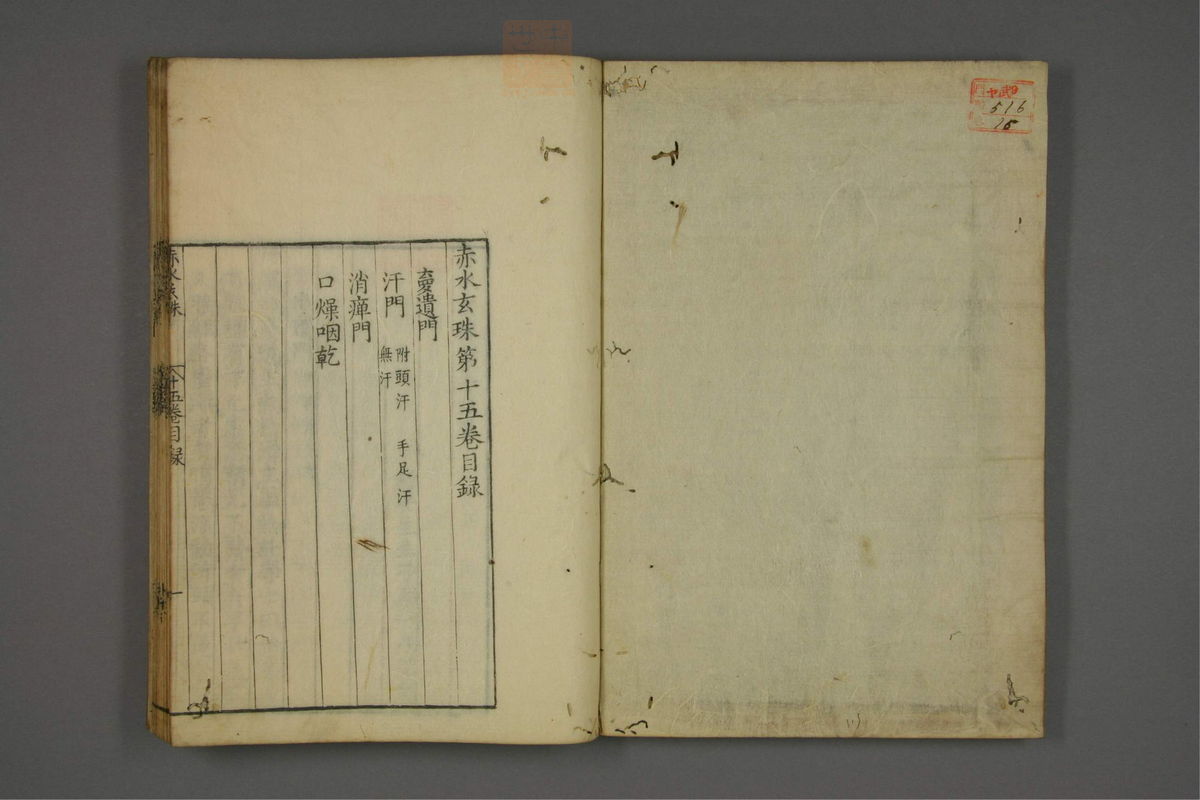 516
15
赤水玄珠第十五卷目錄
夢遺門
汗門 附頭汗 手足汗
無汗
消癉門
口燥咽乾
赤水玄珠 十五卷目錄 一